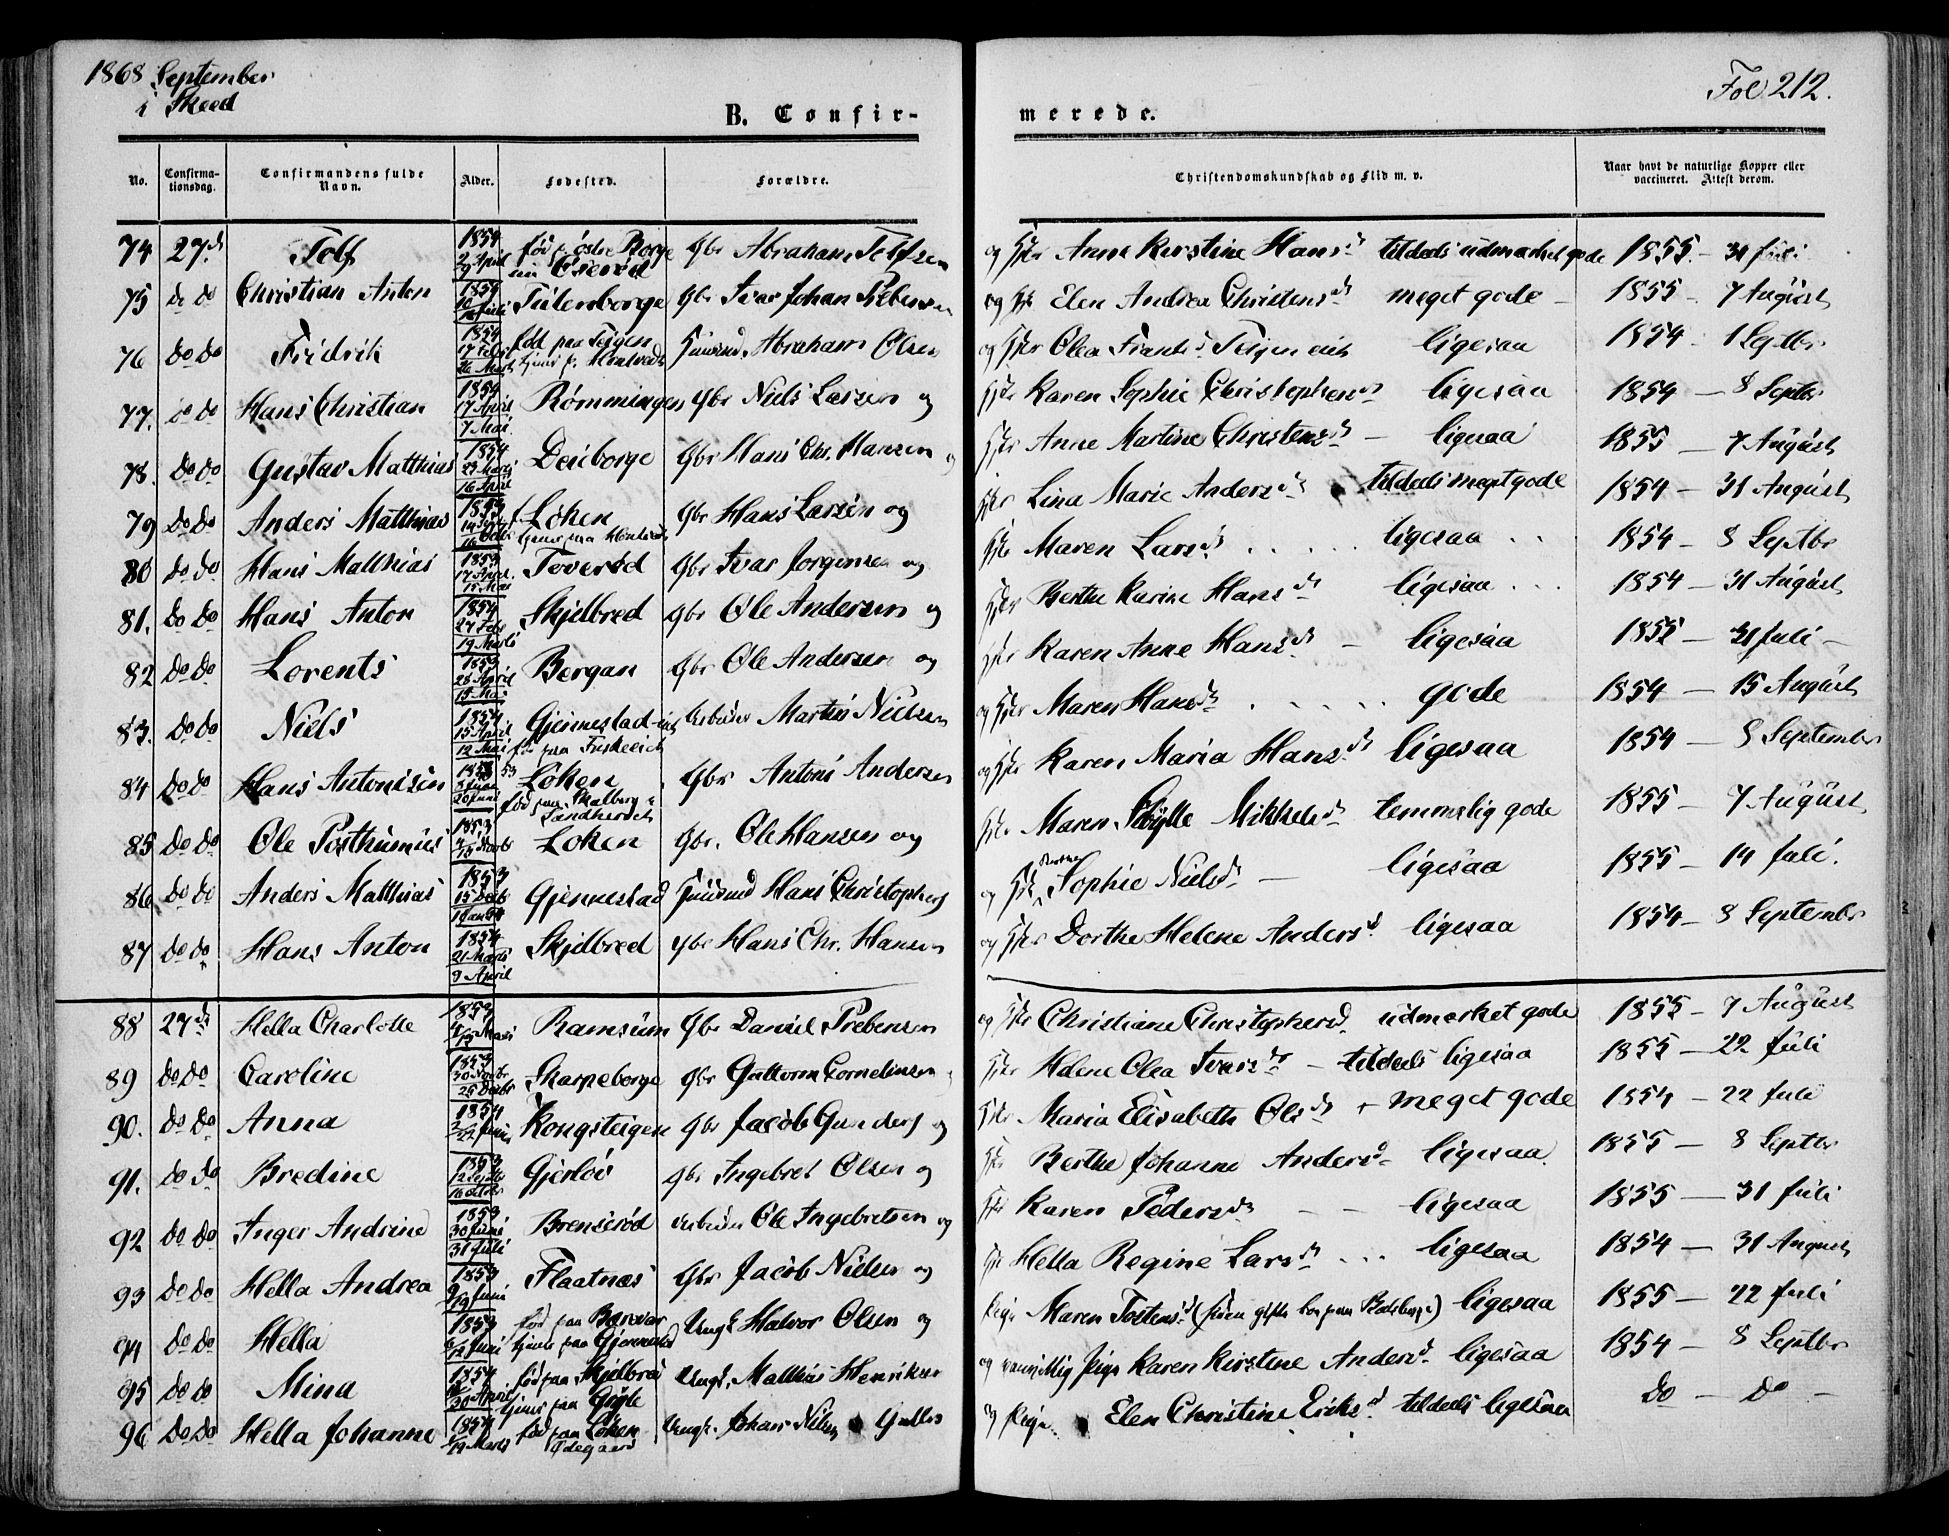 1868 September
i Skeed
Fol 212.
B. Confirmerede.
No. Confirmationsdag. Confirmandens fulde Navn. Alder. Fødested. Forældre. Christendomskundskab og Flid m. v. Naar havt de naturlige Kopper eller vaccineret. Attest derom.
74 27d Tolf 1854 Gbr Abraham Tolfsen og Anne Kirstine Hansd tildeels udmærket gode 1855 - 31 Juli
75 do do Christian Anton 1854 Gbr Ivar Johan Prebensen og Elen Andrea Christensd meget gode - 1855 - 7 August
76 do do Fridrik 1854 Abraham Olsen og Olea ligesaa 1854 - 1 Septbr
77. do do Hans Christian 1854 17 April 7 Mai Rømmingen Gbr Niels Larsen og Karen Sophie Christophersd ligesaa 1854 - 8 Septbr
78. do do Gustav Matthias 1854 16 April Gbr Hans Chr. Hansen og Anne Martine Christensd - ligesaa 1855 - 7 August
79 do do Anders Matthias 1853 Løken Gbr Hans Larsen og Lina Marie Andersd tildeels meget gode 1854 - 31 August
80 do do Hans Matthias 1853 17 April 15 Mai Toverød Gbr Ivar Jørgensen og Maren Larsd ligesaa 1854 - 8 Septbr
81. do do Hans Anton 1854 27 Febr 19 Marts Skjelbred Gbr Ole Andersen og Berthe Karine Hansd ligesaa 1854 - 31 August
82 do do Lorents 1853 Bergan Gbr Ole Andersen og Karen Anne Hansd - ligesaa 1855 - 31 Juli -
83. do do Niels 1854 15 April 12 Mai Gjennestad-eie Arbeider Martin Nielsen og Maren Hansd gode 1854 - 15 August
84 do do Hans Antonisen 53 20 Juni Løken Gbr Antoni Andersen og Karen Maria Hansd ligesaa 1854 - 8 September
85 do do Ole Posthumius 1853 Løken Gbr. Ole Hansen og Maren Mikkelsd temmelig gode 1855 - 7 August
86 do do Anders Matthias 1853 Gjennestad Hans Christophers og Berthe Sophie Nielsd - ligesaa 1855 - 14 Juli.
87 do do Hans Anton 1854 21 Marts 9 April Skjelbred Gbr Hans Chr. Hansen og Dorthe Helene Andersd ligesaa 1854 - 8 Septembr
88 27d Hella Charlotte Ramsum Gbr Daniel Prebensen og Christiane Christophersd udmerket gode 1855 - 7 August
89 do do Caroline 1853 30 Novbr 25 Decbr Skarpeborge Gbr Guttorm Corneliusen Helene Olea Ivarsd - tildeels ligesaa 1855 - 22 Juli
90. do do Anna 1854 Kongsteigen Gbr Jacob Gunders og Maria Elisabeth Olsd meget gode 1854 - 22 Juli
91. do do Bredine 1853 Gjerløv Gbr Ingebret Olsen og Berthe Johanne Andersd ligesaa. 1855 - 8 Septbr
92 do do Inger Andrine 1853 30 Juni 31 Juli Brenserød Arbeider Ole Ingebretsen og Karen Pedersd - - ligesaa 1855 - 31 Juli
93 do do Hella Andrea 1853 9/19 Juni Flaatnæs Gbr Jacob Nielsen og Hella Regine Larsd ligesaa 1854 - 31 August
94 do do Hella 1853 Ungk Halvor Olsen og Pige Maren Tostensd ligesaa 1855 - 22 Juli
95 do do Mina 1854 30 April født paa Skjelbred Ungk. Matthias Henriksen og vanvittig Pige Karen Kirstine Andersd ligesaa 1854 - 8 Septbr
96 do do Hella Johanne 1854 født paa Løken Ødegaard Ungk. Johan Nilsen og Pige Elen Christine Eriksd tildeels ligesaa do - do -